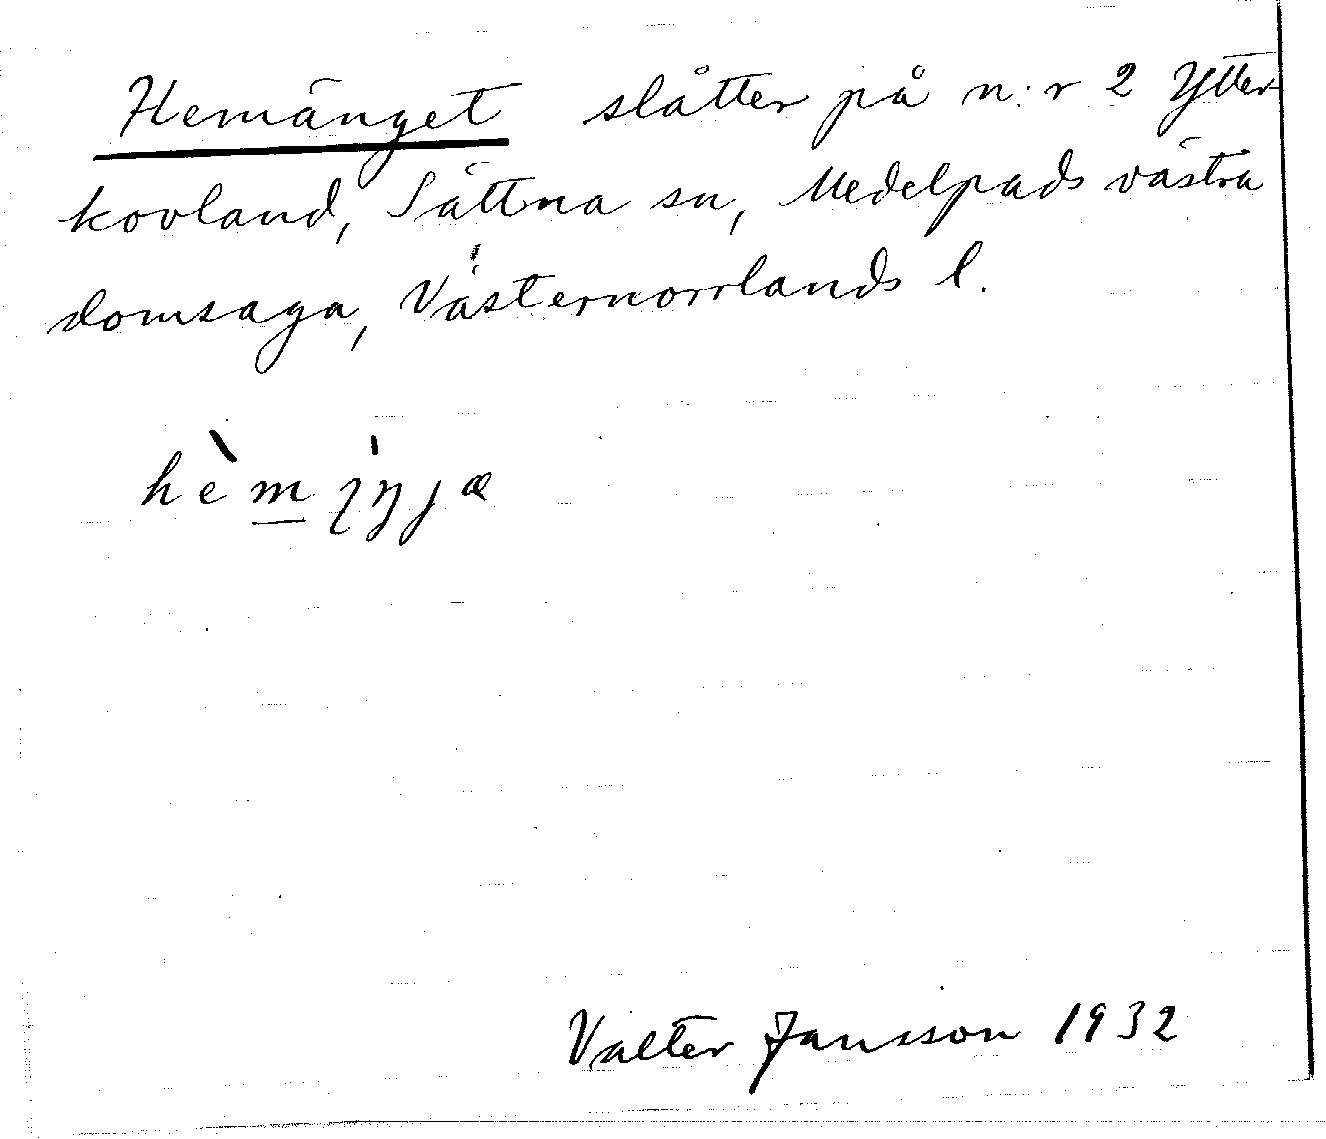 Hemänget slåtter på n:r 2 Ytter-
kovland, Sättna sn, Medelpads västra
domsaga, Västernorrlands l.
Valter Jansson 1932